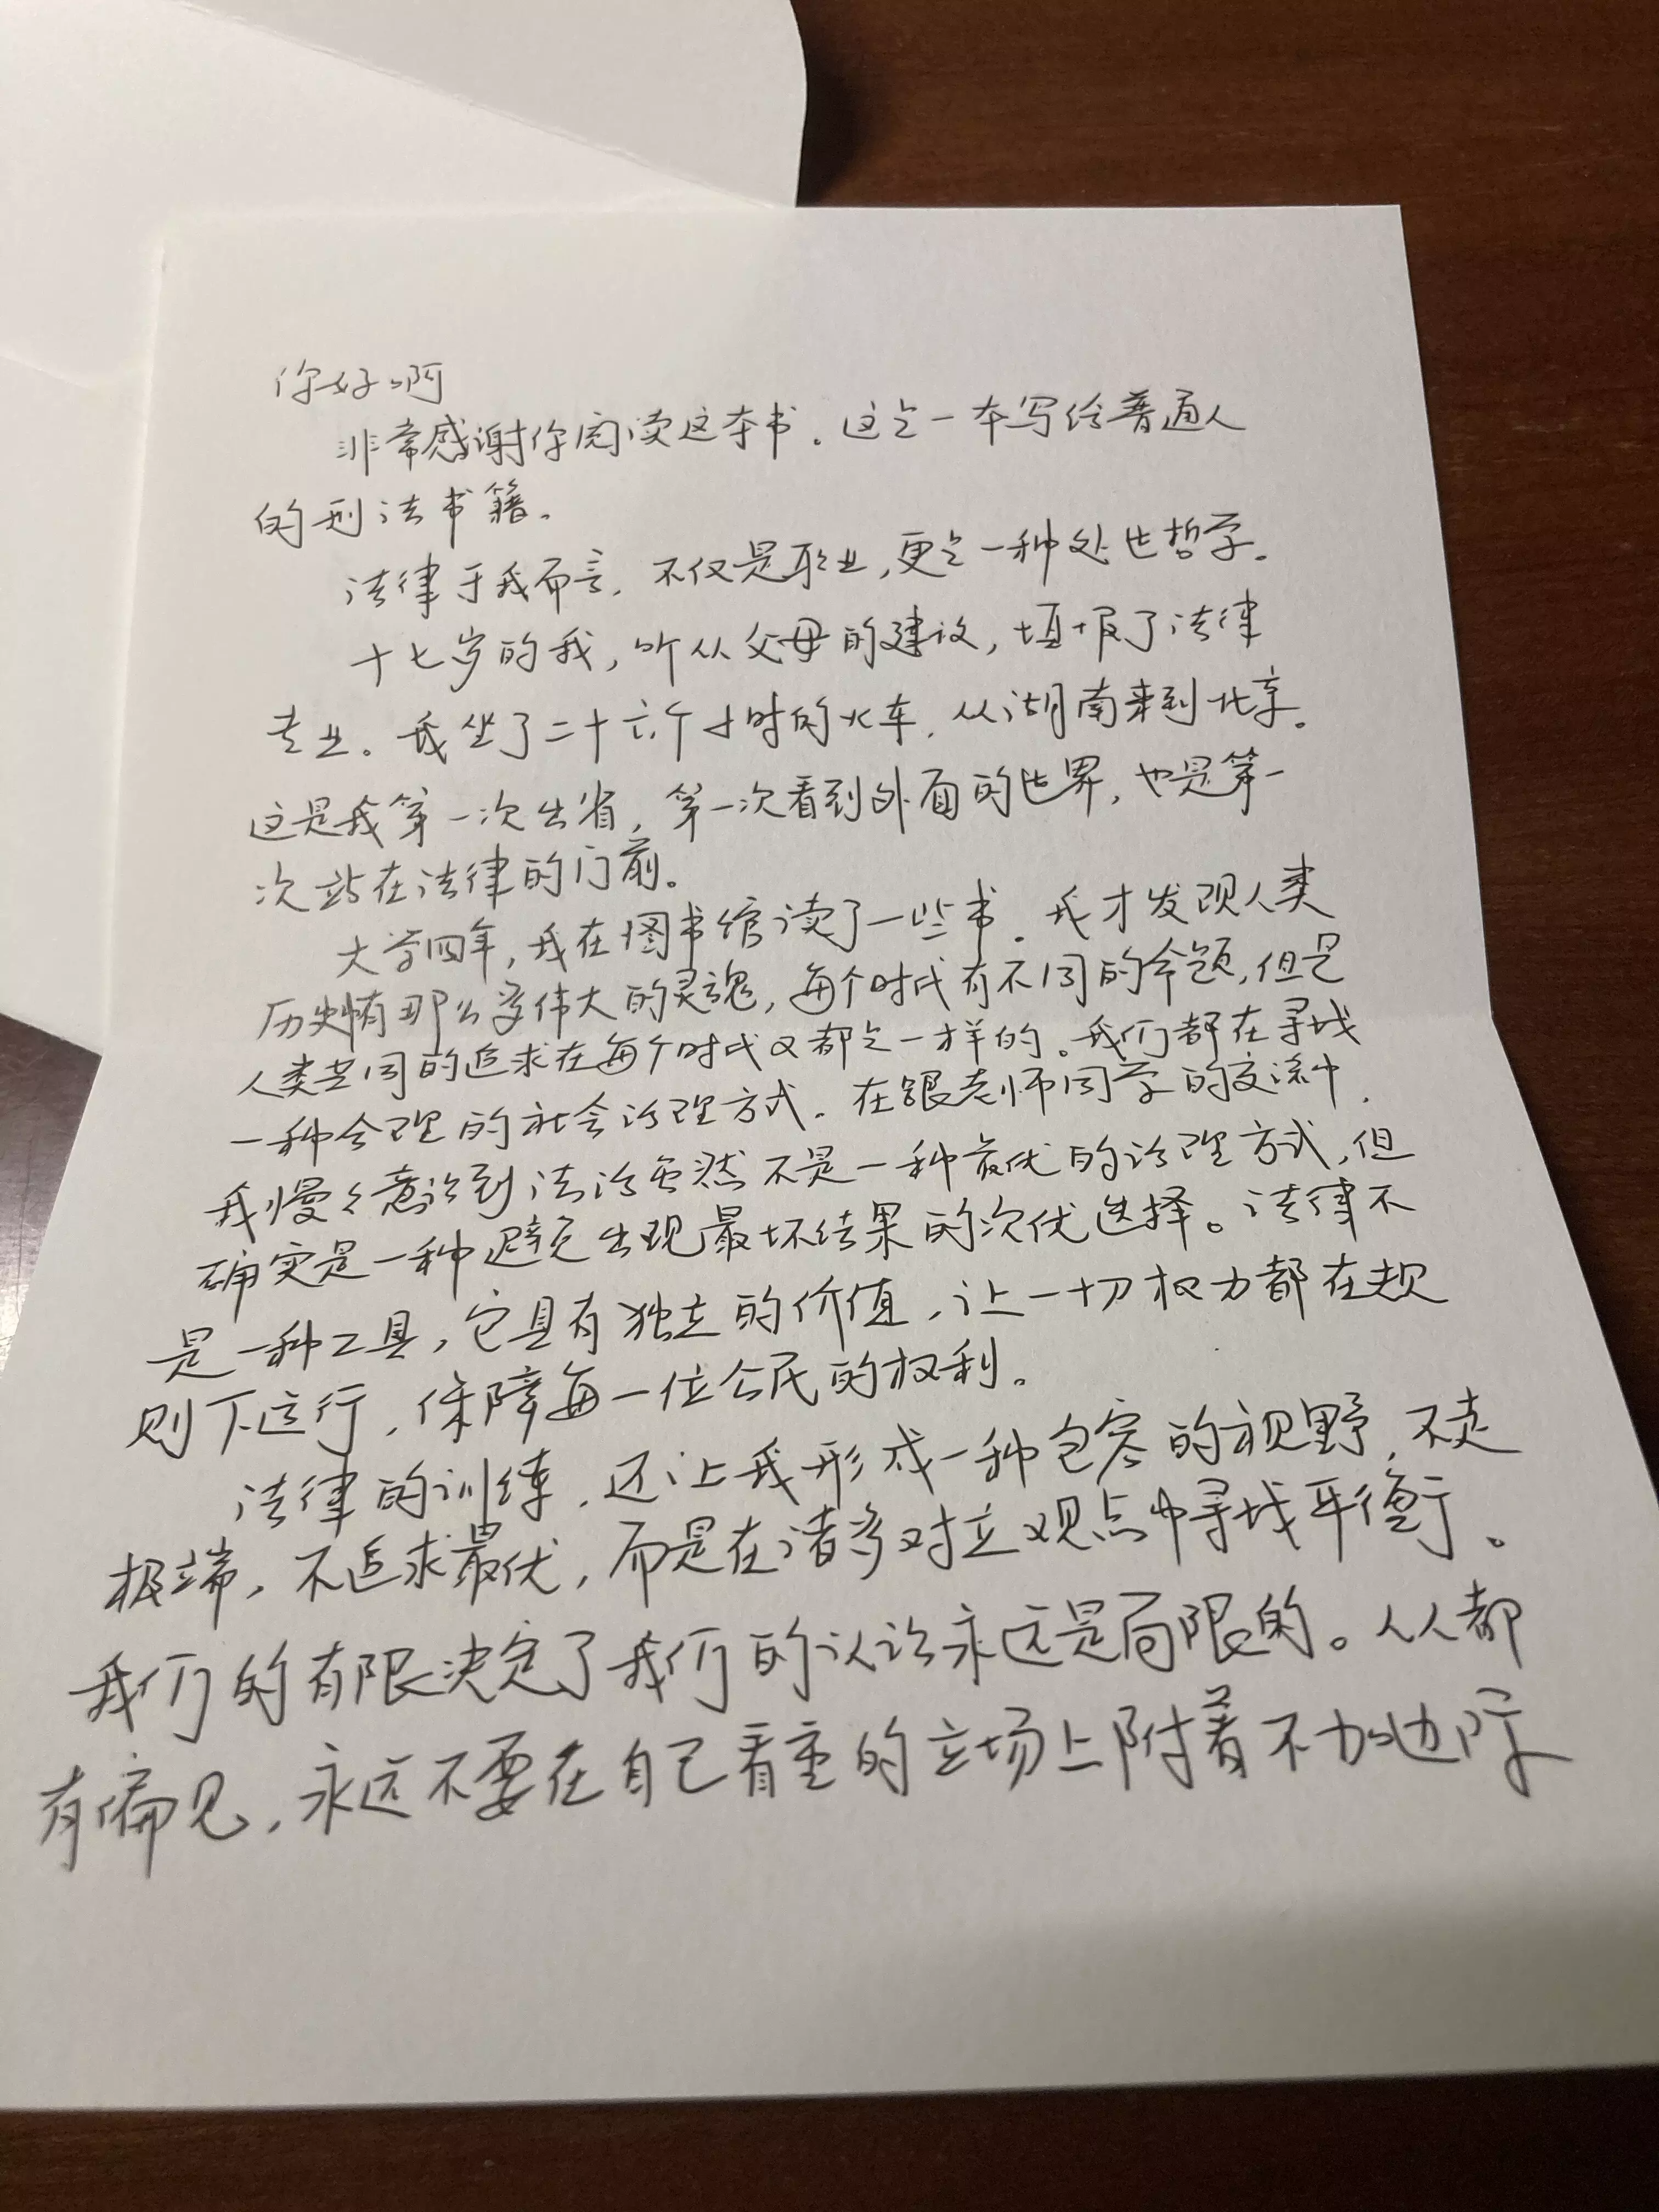 你好啊
非常感谢你阅读这本书。这是一本写给普通人
的刑法书籍。
法律于我而言，不仅是职业，更是一种处世哲学。
十七岁的我，听从父母的建议，填报了法律
专业。我坐了二十六个小时的火车，从湖南来到北京。
这是我第一次出省，第一次看到外面的世界，也是第一
次站在法律的门前。
大学四年，我在图书馆读了一些书，我才发现人类
历史有那么多伟大的灵魂，每个时代有不同的命题，但是
人类共同的追求在每个时代又都是一样的。我们都在寻找
一种合理的社会治理方式。在跟老师同学的交流中，
我慢々意识到法治虽然不是一种最优的治理方式，但
确实是一种避免出现最坏结果的次优选择。法律不
是一种工具，它具有独立的价值，让一切权力都在规
则下运行，保障每一位公民的权利。
法律的训练，还让我形成一种包容的视野，不走
极端，不追求最优，而是在诸多对立观点中寻找平衡。
我们的有限决定了我们的认识永远是局限的。人人都
有偏见，永远不要在自己看重的立场上附着不加边际